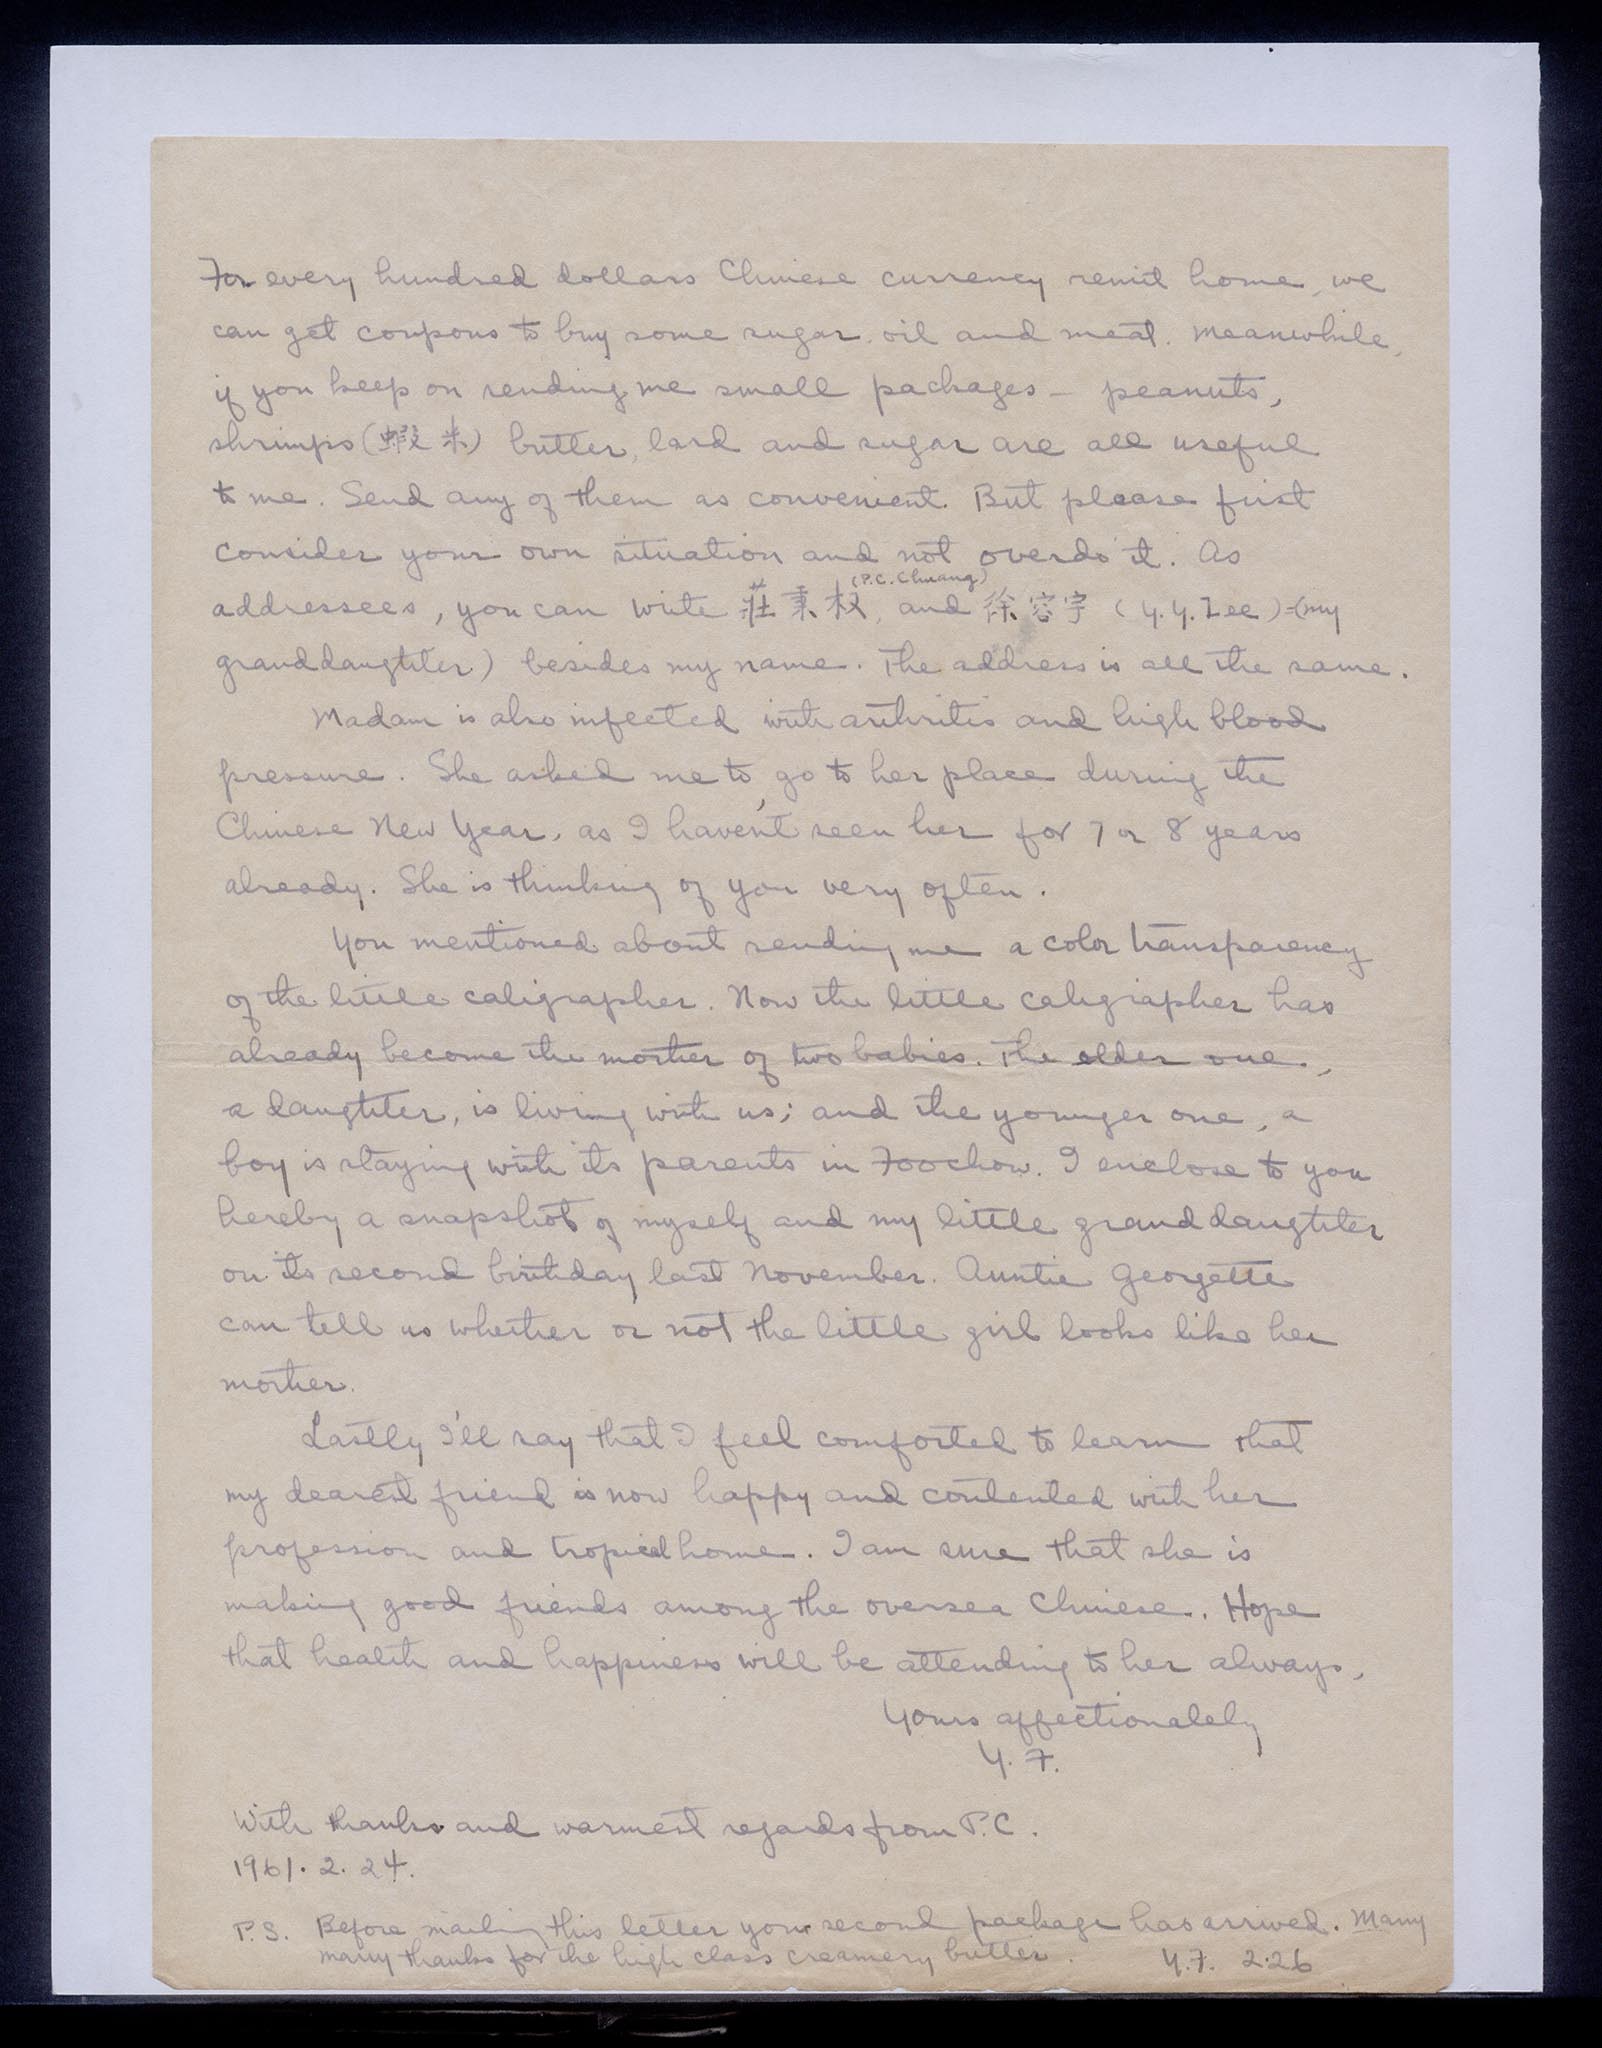 For every hundred dollars Chinese currency remit home, we
can get coupons to buy some sugar, oil and meat. Meanwhile,
if you keep on sending me small packages - peanuts,
shrimps (蝦米) butter, lard and sugar are all useful
to me. Send any of them as convenient. But please first
consider your own situation and not overdo it. As
(P.C. Chuang)
addressees, you can write 莊秉权, and 徐容宇 (Y.Y. Zee)=(my
granddaughter) besides my name. The address is all the same.
Madam is also infected with arthritis and high blood
pressure. She asked me to go to her place during the
Chinese New Year, as I haven't seen her for 7 or 8 years
already. She is thinking of you very often.
You mentioned about sending me a color transparency
of the little caligrapher. Now the little caligrapher has
already become the mother of two babies. The elder one,
a daughter, is living with us; and the younger one, a
boy is staying with its parents in Foochow. I enclose to you
hereby a snapshot of myself and my little granddaughter
on its second birthday last November. Auntie Georgette
can tell us whether or not the little girl looks like her
mother.
Lastly I'll say that I feel comforted to learn that
my dearest friend is now happy and contented with her
profession and tropical home. I am sure that she is
making good friends among the oversea Chinese. Hope
that health and happiness will be attending to her always,
Yours affectionately
Y. F.
With thanks and warmest regards from P.C.
1961. 2. 24.
P.S. Before mailing this letter your second package has arrived. Many
many thanks for the high class creamery butter. Y.F. 2.26